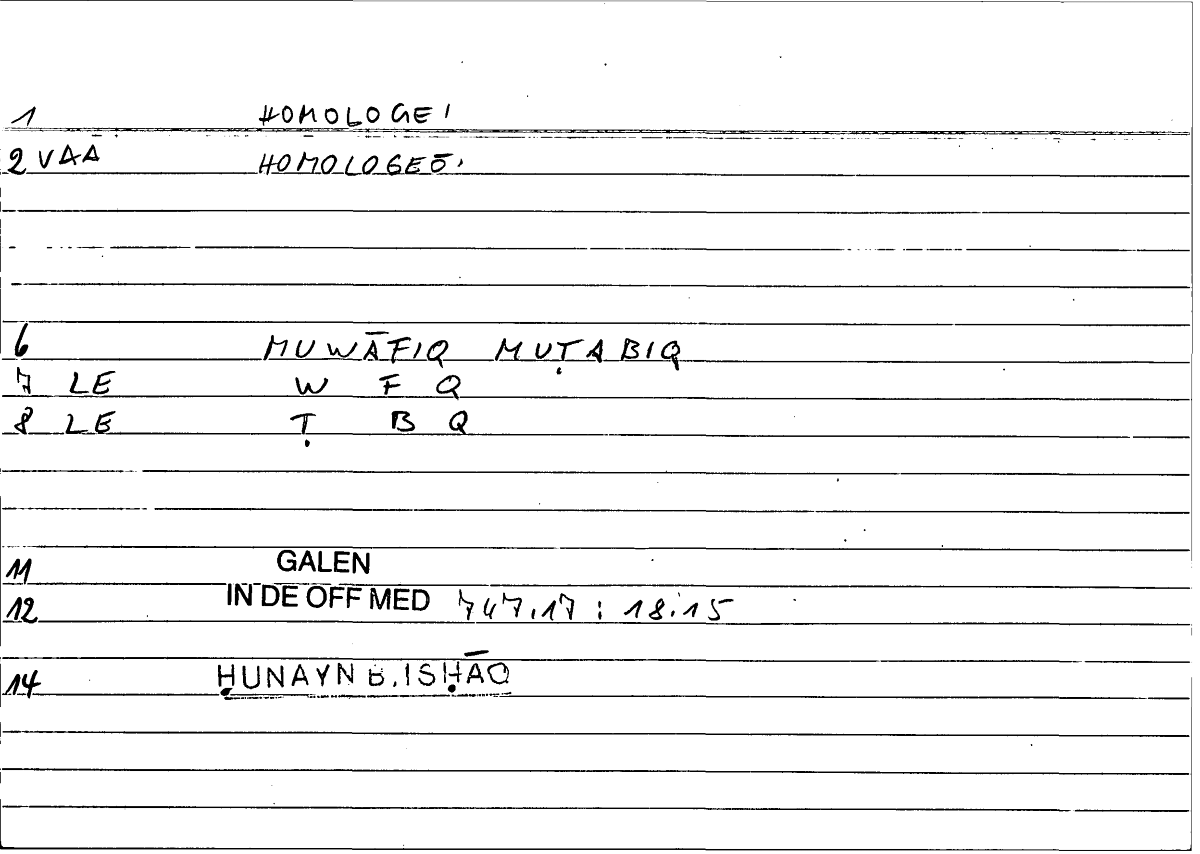 1 HOMOLOGEI
2 VAA HOMOLOGEŌ.
6 MUWĀFIQ MUṬABIQ
7 LE W F Q
8 LE Ṭ B Q
11 GALEN
12 IN DE OFF MED 747.17 : 18.15
14 ḤUNAYN B. ISḤĀQ